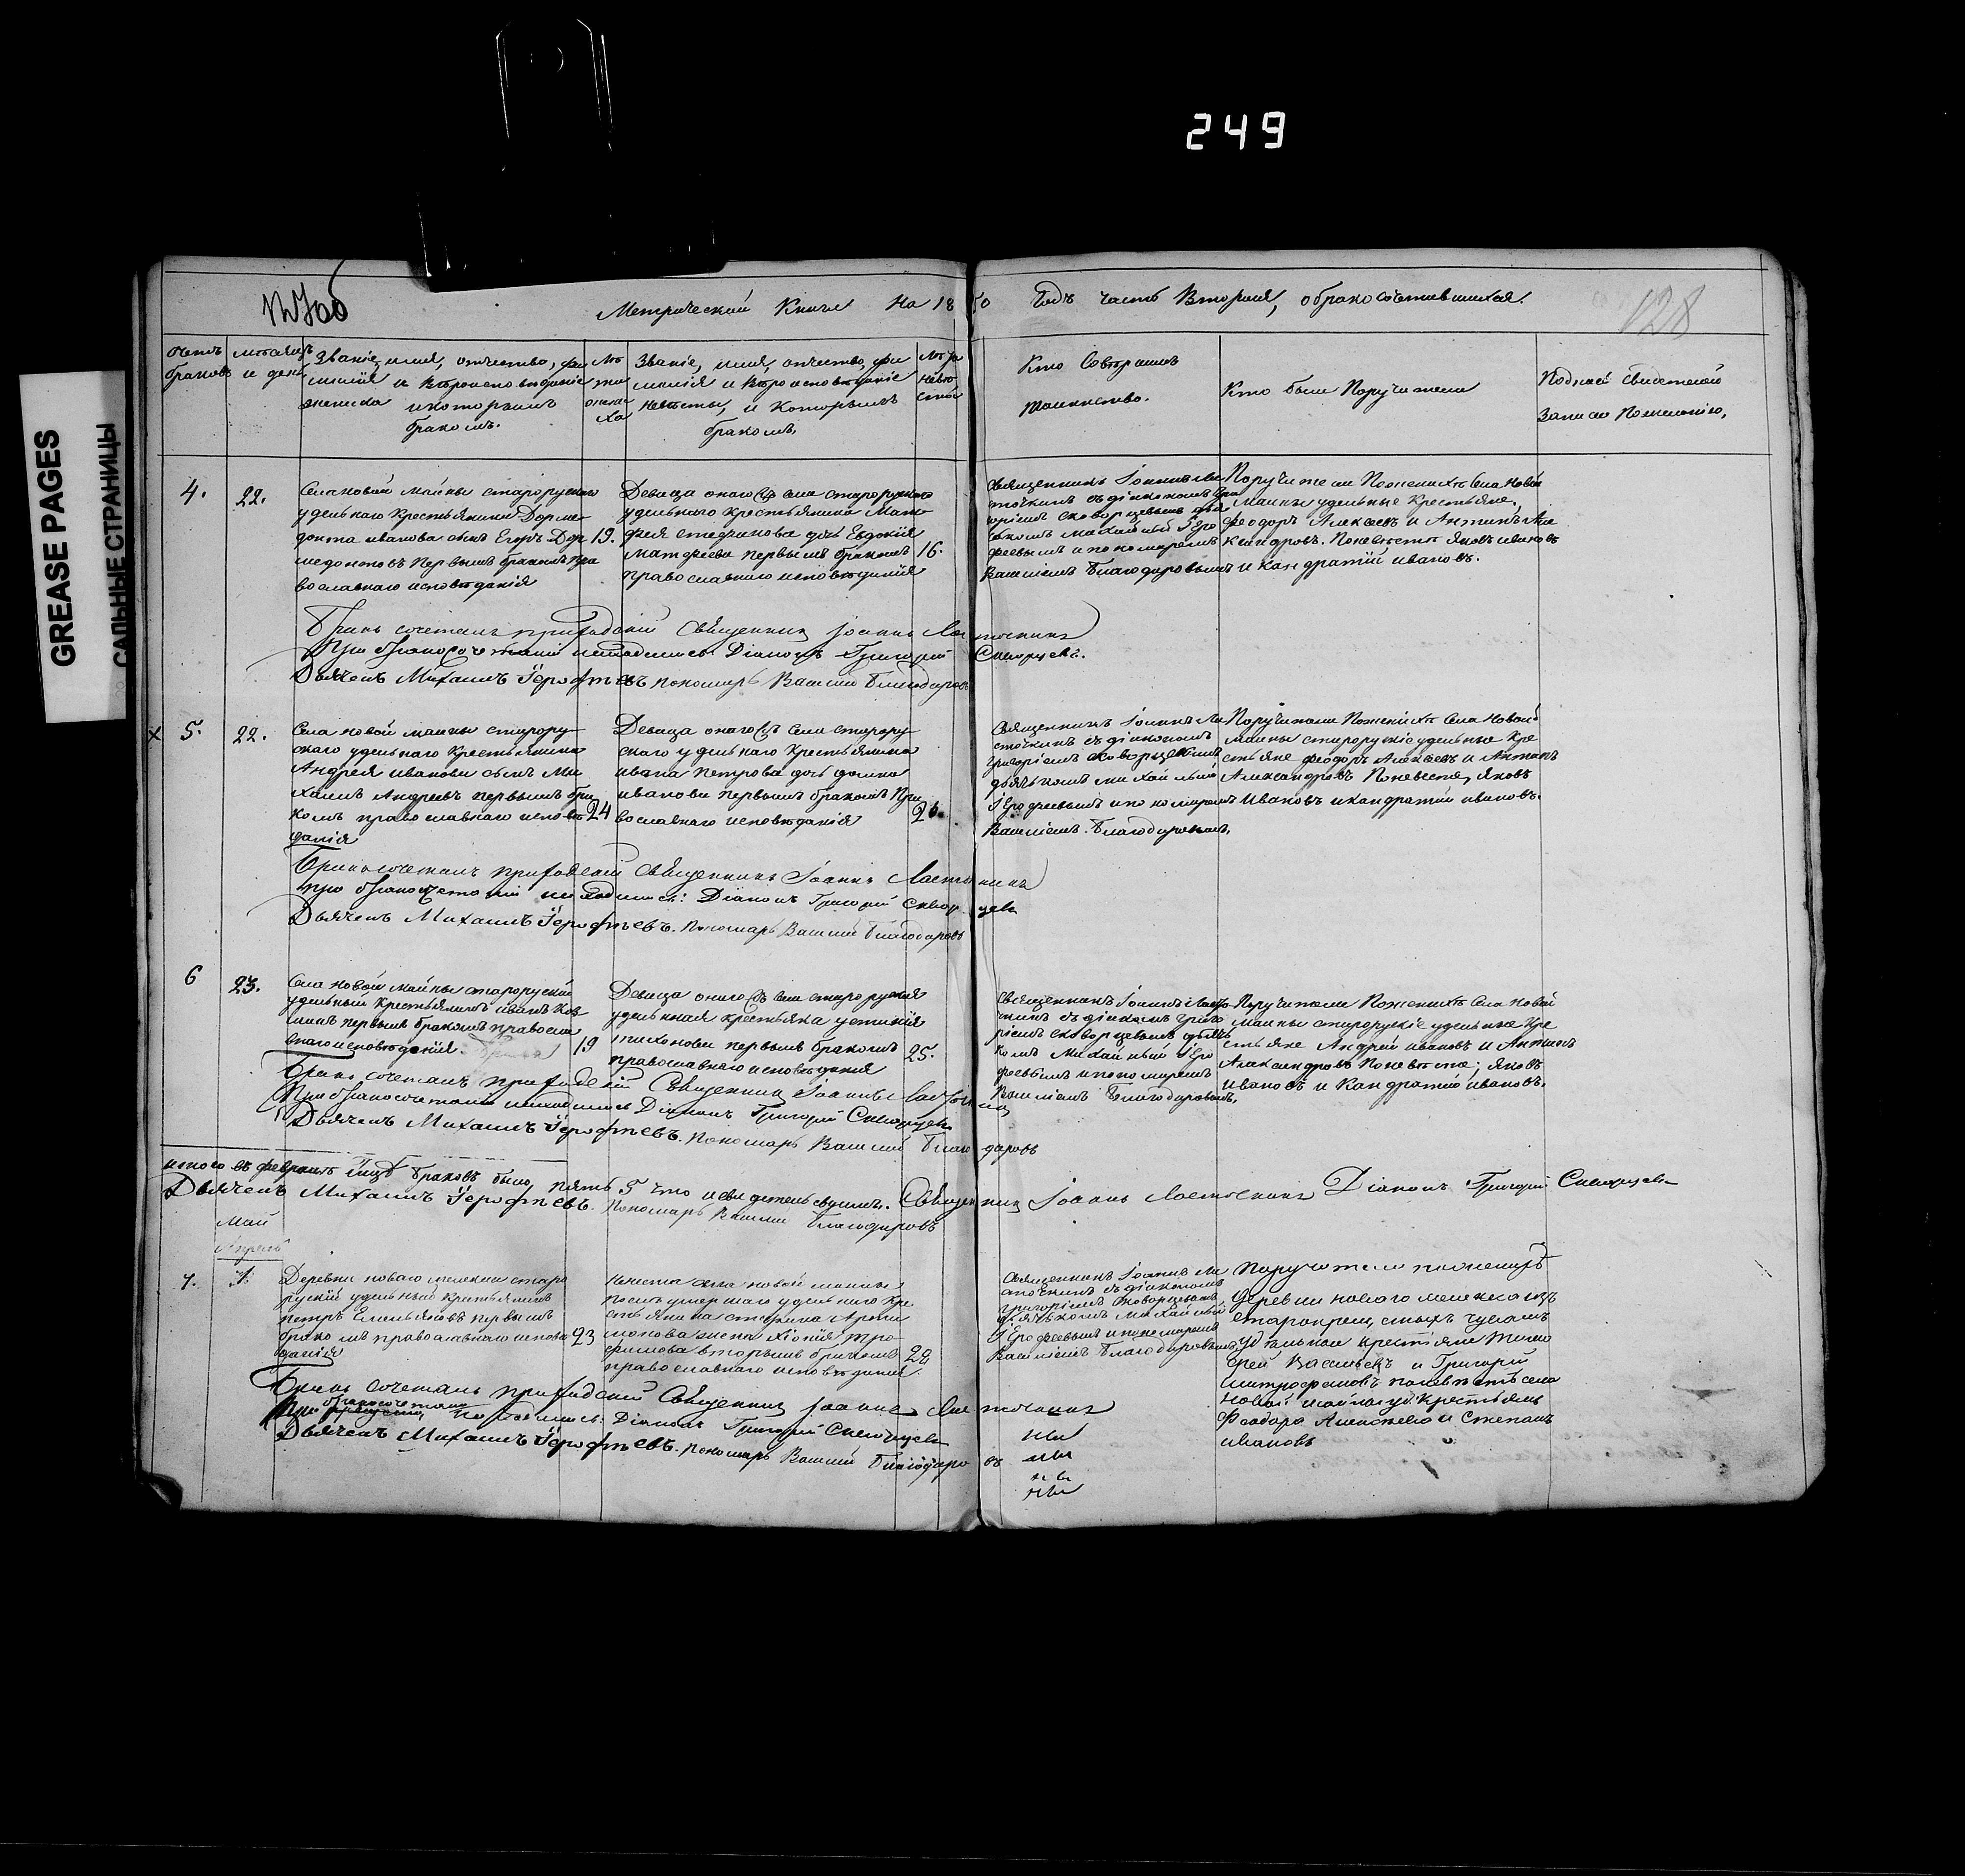 249
GREASE PAGES
САЛЬНЫЕ СТРАНИЦЫ
Метрической Книги На 1850 Годъ часть Вторая, о бракосочетавшихся.
128
Счетъ браковъ
мѣсяцъ и день
Званіе, имя, отчество, фамилія и вѣроисповѣданіе жениха и которымъ бракомъ.
Лѣта жениха
Званіе, имя, отчество, фамилія и вѣроисповѣданіе невѣсты, и которымъ бракомъ.
Лѣта невѣсты
Кто Совѣршалъ
таинство.
Кто были Поручители
Подпись Свидетелей
записи Пожеланію,
4.
22.
Села новой майны старорускаго
удельнаго Крестьянина Дорме-
донта иванова сынъ Егоръ Дор
медонтовъ Первымъ бракомъ пра
вославнаго исповѣданія
19.
Девица онаго Съ села старорускаго
удельнаго крестьянина Мат
фея стефанова дочь Евдокія
Матфеева первымъ бракомъ
православнаго исповѣданія
16.
Священникъ Іоаннъ Ла
сточкинъ съ діякономъ Гри
горіемъ Скворцевымъ дья
чкомъ Михайлой Геро
феевымъ и пономаремъ
Василіемъ Благодаровымъ
Поручители Поженихѣ Села Новой
Майны удельные Крестьяне,
Феодоръ Алексѣевъ и Антипъ Але
ксандровъ. Поневѣстѣ Яковъ ивановъ
и Кандратій ивановъ.
Бракъ сочеталъ приходскій Священникъ Іоаннъ Ласточкинъ
При бракосочетаніи находились: Діаконъ Григорій Скворцевъ.
Дьячекъ Михаилъ Герофѣевъ пономарь Василій Благодаровъ
х 5.
22.
Села новой майны старору-
скаго удельнаго Крестьянина
Андрея иванова сынъ Ми
хаилъ Андреевъ первымъ бра
комъ православнаго исповѣ
данія
24
Девица онаго Съ села старору
скаго удельнаго Крестьянина
ивана Петрова дочь домна
иванова первымъ бракомъ Пра
вославнаго исповѣданія
Священникъ Іоаннъ Ла
сточкинъ съ діякономъ
Григоріемъ Скворцевымъ
дьячкомъ михайлой
Герофеевымъ и пономаремъ
Василіемъ Благодаровымъ,
Поручители Поженихѣ Села Новой
майны старорускіе удельные Кре
стьяне феодоръ Алексѣевъ и Антипъ
Александровъ Поневесте, Яковъ
Ивановъ и кандратій ивановъ.
Бракъ сочеталъ приходскій Священникъ Іоаннъ Ласточкинъ
при бракосочетаніи находились: Діаконъ Григорій Скворцевъ
Дьячекъ Михаилъ Герофѣевъ. Пономарь Василій Благодаровъ
6
23.
Села новой майны старорускій
удельный Крестьянинъ иванъ
первымъ бракомъ православ
наго исповѣданія.
19
Девица онаго Съ села старорускія
удельная крестьянка устинія
тихонова первымъ бракомъ
православнаго исповѣданія
25.
Священникъ Іоаннъ Ласто
чкинъ съ діякономъ Григо
ріемъ Скворцевымъ дьяч
комъ Михайлой Геро
феевымъ и пономаремъ
Василіемъ Благодаровымъ,
Поручители Поженихѣ Села Новой
Майны старорускіе удельные Кре
стьяне Андрей ивановъ и Антипъ
Александровъ Поневѣсте; Яковъ
Ивановъ и Кандратій ивановъ.
Бракъ сочеталъ приходскій Священникъ Іоаннъ Ласточкинъ
При бракосочетаніи находились Діаконъ Григорій Скворцевъ
Дьячекъ Михаилъ Герофѣевъ. Пономарь Василій Благодаровъ
итого въ февралѣ браковъ было пять 5 что и свидетельствуемъ. Священникъ Іоаннъ Ласточкинъ Діаконъ Григорій Скворцевъ
Дьячекъ Михаилъ Герофѣевъ. Пономарь Василій Благодаровъ
Май
Апрель
7.
Деревни новаго мелекеса старо
рускій удельный крестьянинъ
петръ Емельяновъ первымъ
бракомъ православнаго исповѣ
данія
23
села новой майны
послѣ умершаго удельнаго кре
стьянина
жена Хіонія Тро
фимова вторымъ бракомъ
православнаго исповѣданія
22
Священникъ Іоаннъ Ла
сточкинъ съ діякономъ
григоріемъ Скворцевымъ
дьячкомъ Михайлой
Герофеевымъ и пономаремъ
Василіемъ Благодаровымъ
Поручители поженихѣ
Деревни новаго мелекеса изъ
старокрещеныхъ чувашъ
удельныи крестьяне Тимо
фей Васильевъ и Григорій
митрофановъ поневѣстѣ села
Новой майны уд. Крестьяне
Феодоръ Алексѣевъ и Степанъ
ивановъ
Бракъ сочеталъ приходскій Священникъ Іоаннъ Ласточкинъ
При бракосочетаніи находились: Діаконъ Григорій Скворцевъ
Дьячекъ Михаилъ Герофѣевъ. пономарь Василій Благодаровъ